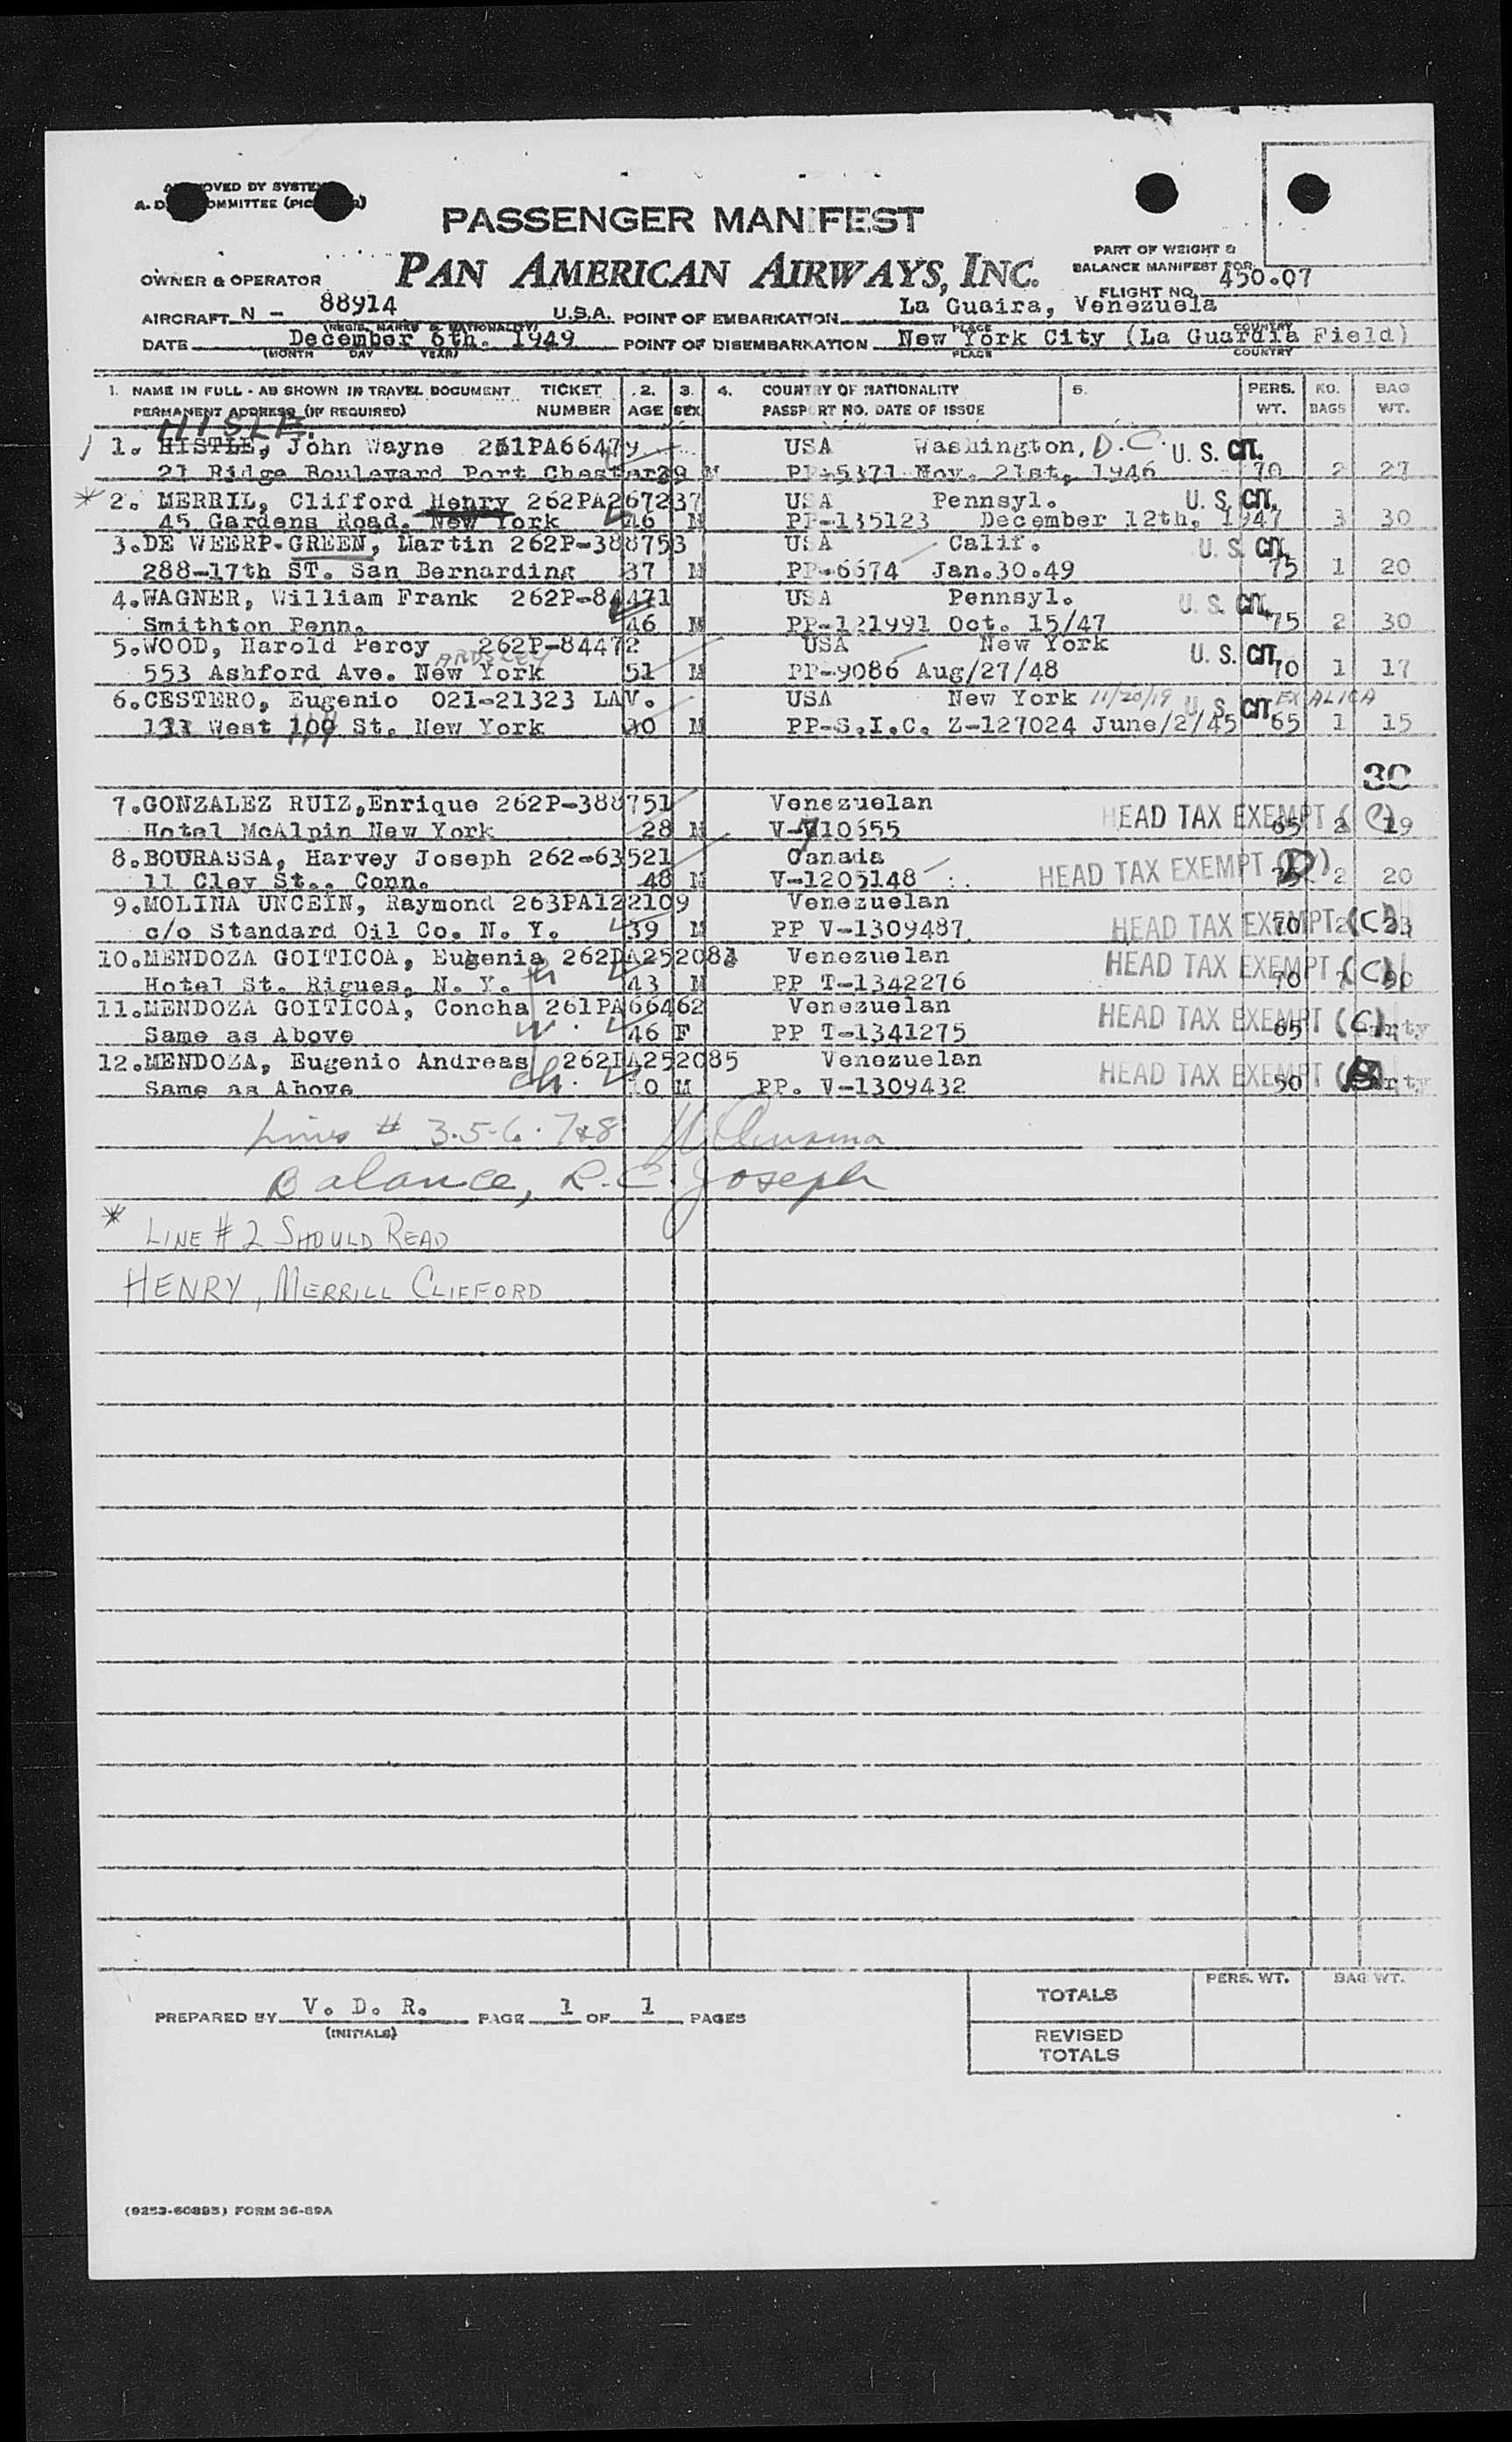 PASSENGER MANIFEST
PART OF WEIGHT &
OWNER & OPERATOR PAN AMERICAN AIRWAYS, INC. BALANCE MANIFEST FOR
FLIGHT NO. 450.07
AIRCRAFT N - 88914 U.S.A. POINT OF EMBARKATION La Guaira, Venezuela
(REGIS. MARKS & NATIONALITY) PLACE COUNTRY
DATE December 6th. 1949 POINT OF DISEMBARKATION New York City (La Guardia Field)
(MONTH DAY YEAR) PLACE COUNTRY
1. NAME IN FULL - AS SHOWN IN TRAVEL DOCUMENT TICKET 2. 3. 4. COUNTRY OF NATIONALITY 5. PERS. NO. BAG
PERMANENT ADDRESS (IF REQUIRED) NUMBER AGE SEX PASSPORT NO. DATE OF ISSUE WT. BAGS WT.
HISLE.
1. HISTLE, John Wayne 261PA66479 USA Washington, D.C. U. S. CIT.
21 Ridge Boulevard Port Chester 29 M PP-5371 Nov. 21st, 1946 70 2 27
* 2. MERRIL, Clifford Henry 262PA267237 USA Pennsyl. U. S. CIT.
45 Gardens Road. New York 46 M PP-135123 December 12th, 1947 3 30
3.DE WEERP-GREEN, Martin 262P-388753 USA Calif. U. S. CIT.
288-17th ST. San Bernarding 37 M PP-6674 Jan.30.49 75 1 20
4.WAGNER, William Frank 262P-84471 USA Pennsyl. U. S. CIT.
Smithton Penn. 46 M PP-121991 Oct. 15/47 75 2 30
5.WOOD, Harold Percy 262P-84472 USA New York
ARDSLEY
553 Ashford Ave. New York 51 M PP-9086 Aug/27/48 U. S. CIT. 70 1 17
6.CESTERO, Eugenio 021-21323 LAV. USA New York 11/20/19 U. S. CIT. EX ALICA
West 109 St. New York M PP-S.I.C. Z-127024 June/2/45 65 1 15
30
7.GONZALEZ RUIZ,Enrique 262P-388751 Venezuelan HEAD TAX EXEMPT (C)
Hotel McAlpin New York 28 M 65 2 19
8.BOURASSA, Harvey Joseph 262-63521 Canada HEAD TAX EXEMPT (D)
11 Clev St., Conn. 48 M V-1205148 75 2 20
9.MOLINA UNCEIN, Raymond 263PA122109 Venezuelan
c/o Standard Oil Co. N. Y. 39 M PP V-1309487 HEAD TAX EXEMPT (C) 70 2
10.MENDOZA GOITICOA, Eugenio Venezuelan HEAD TAX EXEMPT (C)
Hotel St. Rigues, N. Y. h 43 M PP T-1342276 70
11.MENDOZA GOITICOA, Concha 261PA66462 Venezuelan HEAD TAX EXEMPT (C)
Same as Above w. 46 F PP T-1341275 65
12.MENDOZA, Eugenio Andreas 262DA252085 Venezuelan HEAD TAX EXEMPT
Same as Above ch. 10 M PP. V-1309432 50
Lines # 3.5-6.7&8
Balance, R.E. Joseph
* LINE # 2 SHOULD READ
HENRY, MERRILL CLIFFORD
PERS. WT. BAG WT.
TOTALS
PREPARED BY V. D. R. PAGE 1 OF 1 PAGES
(INITIALS)
REVISED
TOTALS
(9253-60895) FORM 36-89A